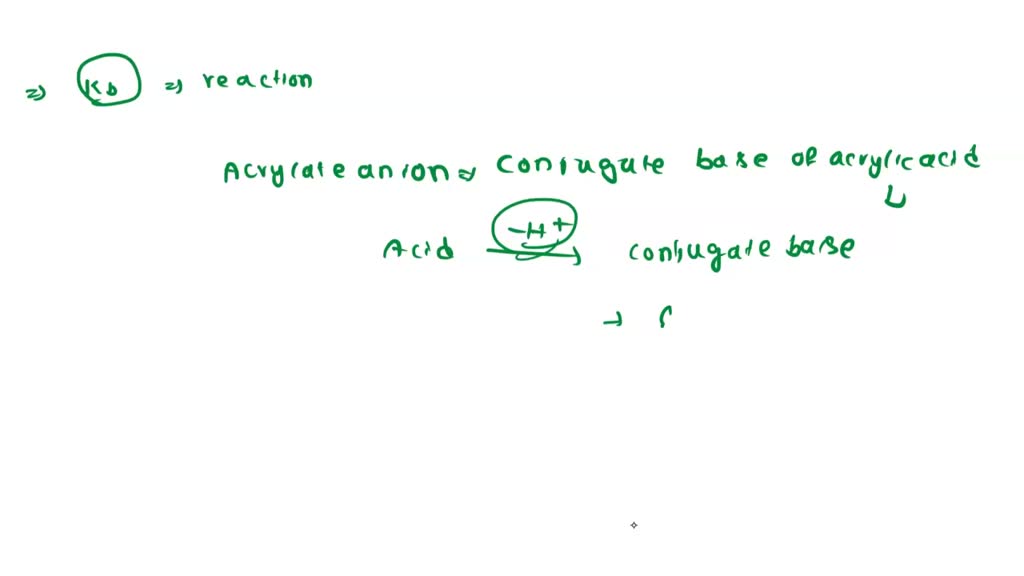 ⇒ Kb ⇒ reaction
Acrylate anion ⇒ Conjugate base of acrylic acid
Acid -H+ → conjugate base
→ (